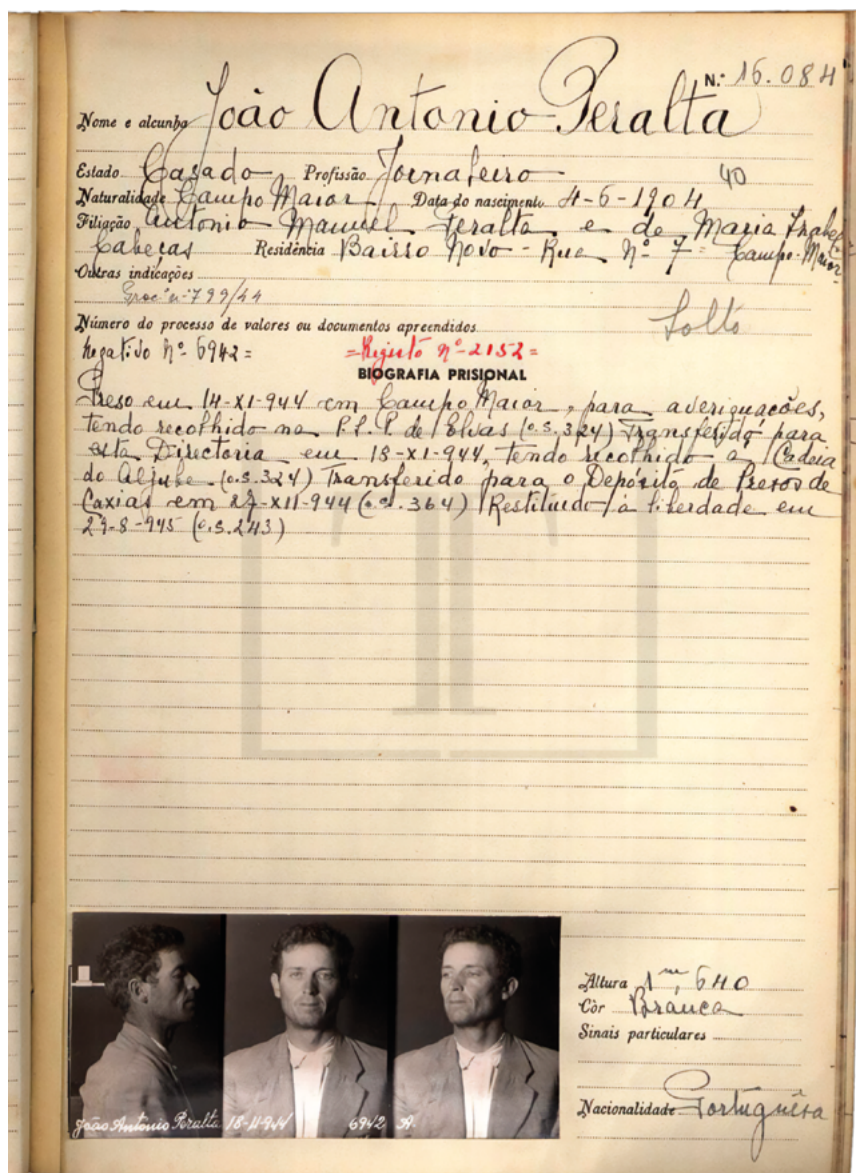 N.º 16.084
Nome e alcunha João Antonio Peralta
Estado Casado Profissão Jornaleiro 40
Naturalidade Campo Maior Data do nascimento 4-6-1904
Filiação Antonio Manuel Peralta e de Maria Izabel
Cabeças Residência Bairro Novo - Rua Nº 7 = Campo-Maior-
Outras indicações
Proc.º nº 799/44
Solto
Número do processo de valores ou documentos apreendidos
Negativo Nº 6942 = =Registo Nº-2152=
BIOGRAFIA PRISIONAL
Preso em 14-XI-944 em Campo Maior, para averiguações,
tendo recolhido no P.S.P. de Elvas (o.s.324) Transferido para
esta Directoria em 18-XI-944, tendo recolhido à Cadeia
do Aljube (o.s.324) Transferido para o Depósito de Presos de
Caxias em 27-XII-944 (o.s.364) Restituido à liberdade em
29-8-945 (o.s.243)
Altura 1m,640
Côr Branca
Sinais particulares
Nacionalidade Portuguêsa
João Antonio Peralta 18-11-944 6942 A.